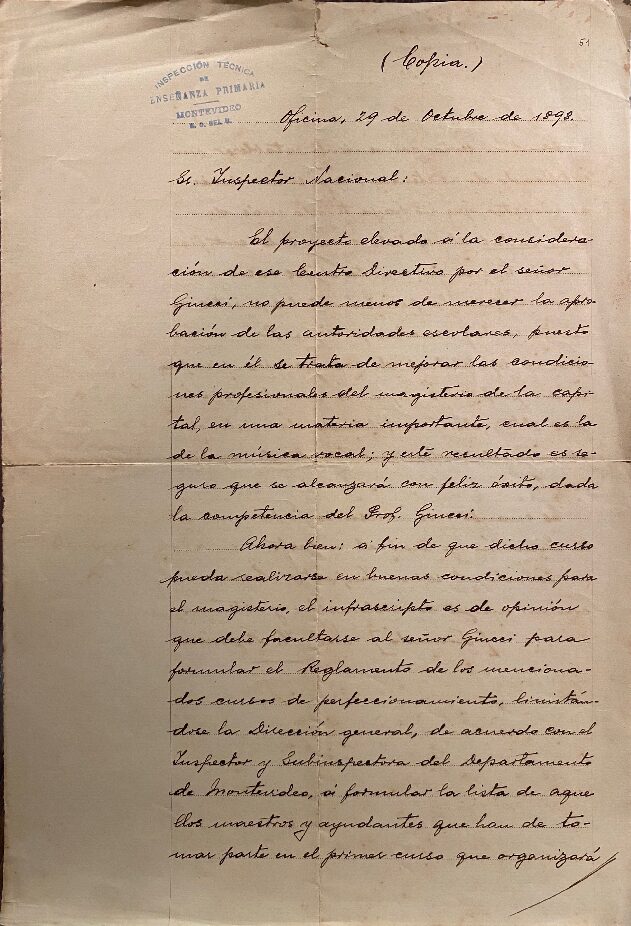 51
(Copia.)
INSPECCIÓN TÉCNICA
DE
ENSEÑANZA PRIMARIA
MONTEVIDEO
Oficina, 29 de Octubre de 1893.
Sr. Inspector Nacional:
El proyecto elevado á la considera
ción de ese Centro Directivo por el señor
Giucci, no puede menos de merecer la apro-
bación de las autoridades escolares, puesto
que en él se trata de mejorar las condicio-
nes profesionales del magisterio de la capi-
tal, en una materia importante, cual es la
de la música vocal; y este resultado es se-
guro que se alcanzará con feliz éxito, dada
la competencia del Prof. Giucci.
Ahora bien: á fin de que dicho curso
pueda realizarse en buenas condiciones para
el magisterio, el infrascripto es de opinión
que debe facultarse al señor Giucci para
formular el Reglamento de los menciona-
dos cursos de perfeccionamiento, limitán-
dose la Dirección general, de acuerdo con el
Inspector y Subinspectora del Departamento
de Montevideo, á formular la lista de aque
llos maestros y ayudantes que han de to-
mar parte en el primer curso que organizará